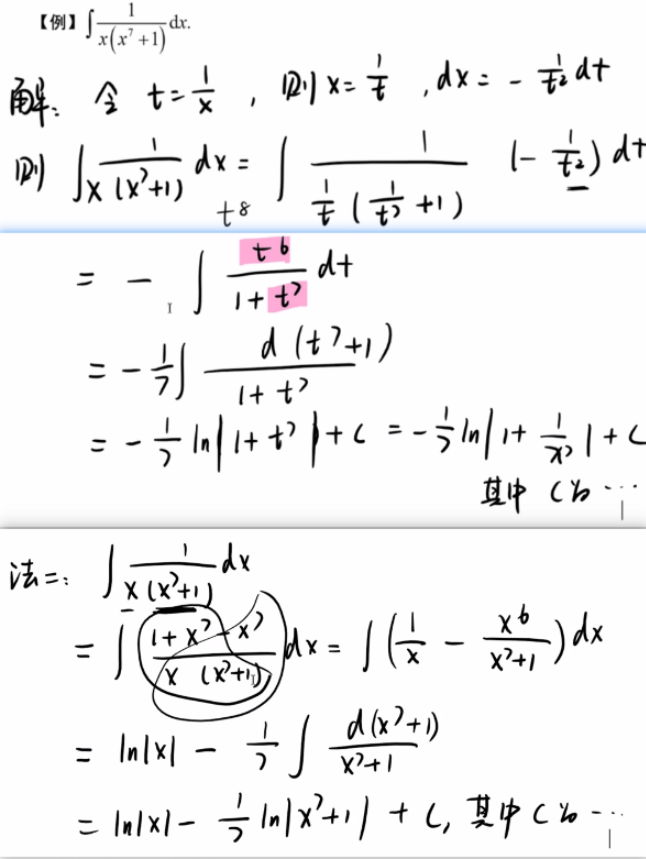 【例】∫ 1/(x(x⁷+1)) dx.
解: 令 t = 1/x , 则 x = 1/t , dx = - 1/t² dt
则 ∫ 1/(x(x⁷+1)) dx = ∫ 1/((1/t)(1/t⁷ +1)) (- 1/t²) dt
t⁸
= - ∫ t⁶/(1+t⁷) dt
= - 1/7 ∫ d(t⁷+1)/(1+t⁷)
= - 1/7 ln|1+t⁷| + C = - 1/7 ln|1+ 1/x⁷| + C
其中 C为 …
法二: ∫ 1/(x(x⁷+1)) dx
= ∫ (1+x⁷-x⁷)/(x(x⁷+1)) dx = ∫ (1/x - x⁶/(x⁷+1)) dx
= ln|x| - 1/7 ∫ d(x⁷+1)/(x⁷+1)
= ln|x| - 1/7 ln|x⁷+1| + C, 其中 C为 …